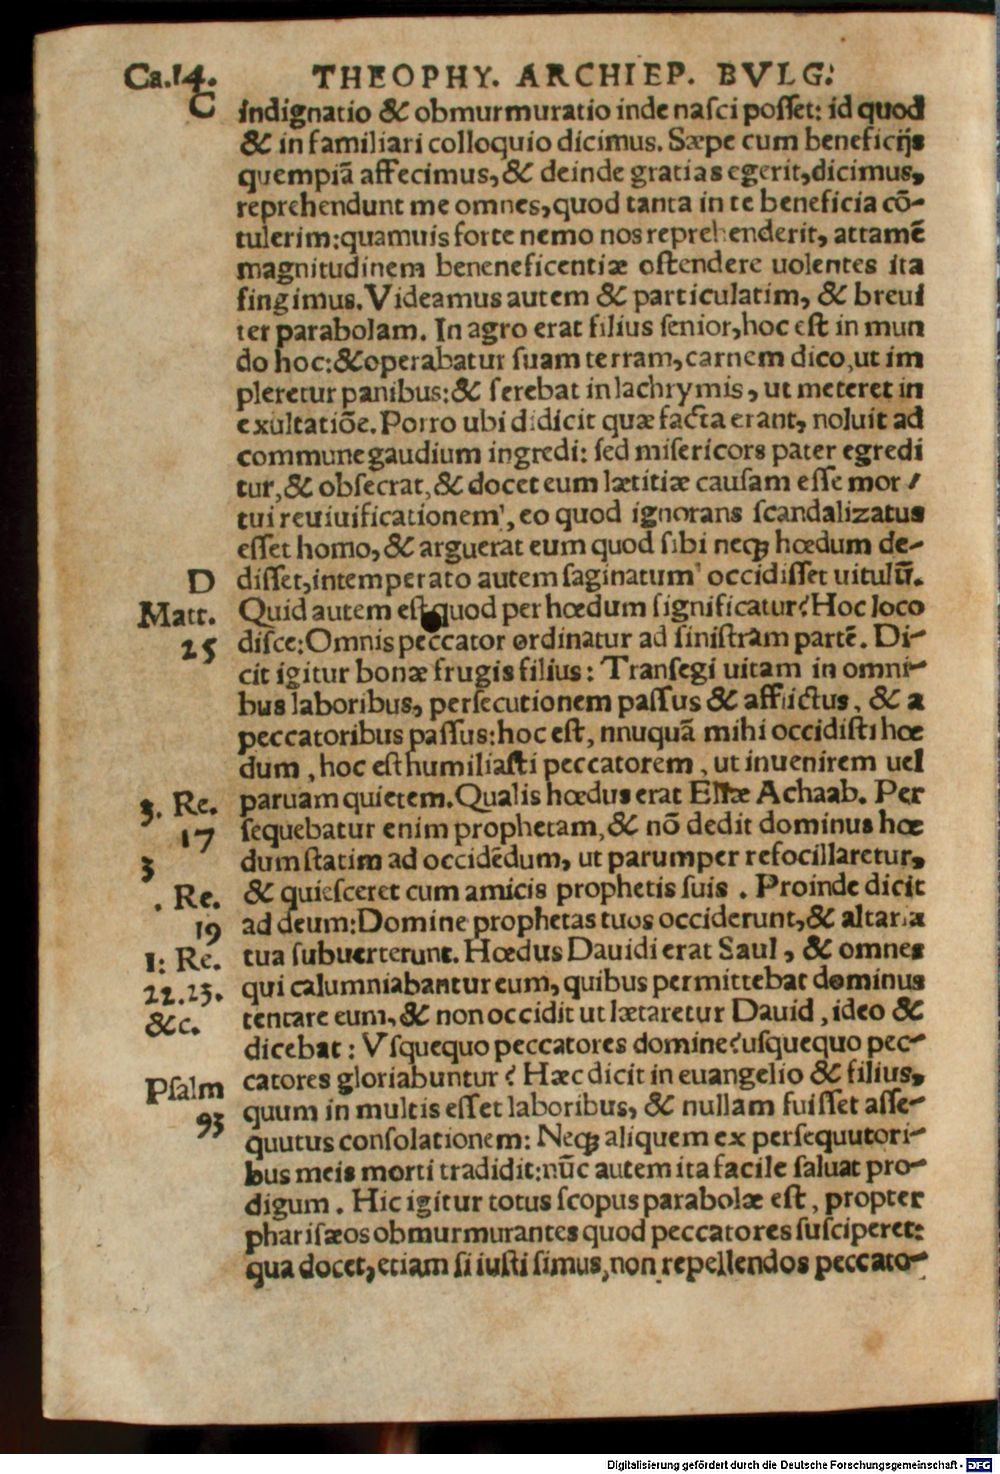 Ca.14.
THEOPHY. ARCHIEP. BVLG.
C
indignatio & obmurmuratio inde nasci posset: id quod
& in familiari colloquio dicimus. Sæpe cum beneficijs
quempiã affecimus, & deinde gratias egerit, dicimus,
reprehendunt me omnes, quod tanta in te beneficia cõ-
tulerim: quamuis forte nemo nos reprehenderit, attamẽ
magnitudinem beneneficentiæ ostendere uolentes ita
fingimus. Videamus autem & particulatim, & breui
ter parabolam. In agro erat filius senior, hoc est in mun
do hoc: & operabatur suam terram, carnem dico, ut im
pleretur panibus: & serebat in lachrymis, ut meteret in
exultatiõe. Porro ubi didicit quæ facta erant, noluit ad
commune gaudium ingredi: sed misericors pater egredi
tur, & obsecrat, & docet eum lætitiæ causam esse mor /
tui reuiuificationem, eo quod ignorans scandalizatus
esset homo, & arguerat eum quod sibi neqꝫ hœdum de-
D
disset, intemperato autem saginatum occidisset uitulũ.
Matt.
Quid autem est quod per hœdum significatur? Hoc loco
25
disce: Omnis peccator ordinatur ad sinistram partẽ. Di-
cit igitur bonæ frugis filius: Transegi uitam in omni-
bus laboribus, persecutionem passus & afflictus, & a
peccatoribus passus: hoc est, nnuquã mihi occidisti hœ
dum, hoc est humiliasti peccatorem, ut inuenirem uel
3. Re.
paruam quietem. Qualis hœdus erat Eliæ Achaab. Per
17
sequebatur enim prophetam, & nõ dedit dominus hœ
3
dum statim ad occidẽdum, ut parumper refocillaretur,
. Re.
& quiesceret cum amicis prophetis suis. Proinde dicit
19
ad deum: Domine prophetas tuos occiderunt, & altaria
1: Re.
tua subuerterunt. Hœdus Dauidi erat Saul, & omnes
22.23.
qui calumniabantur eum, quibus permittebat dominus
&c.
tentare eum, & non occidit ut lætaretur Dauid, ideo &
dicebat: Vsquequo peccatores domine? usquequo pec-
Psalm
catores gloriabuntur? Hæc dicit in euangelio & filius,
93
quum in multis esset laboribus, & nullam fuisset asse-
quutus consolationem: Neqꝫ aliquem ex persequutori-
bus meis morti tradidit: nũc autem ita facile saluat pro-
digum. Hic igitur totus scopus parabolæ est, propter
pharisæos obmurmurantes quod peccatores susciperet:
qua docet, etiam si iusti simus, non repellendos peccato-
Digitalisierung gefördert durch die Deutsche Forschungsgemeinschaft - DFG